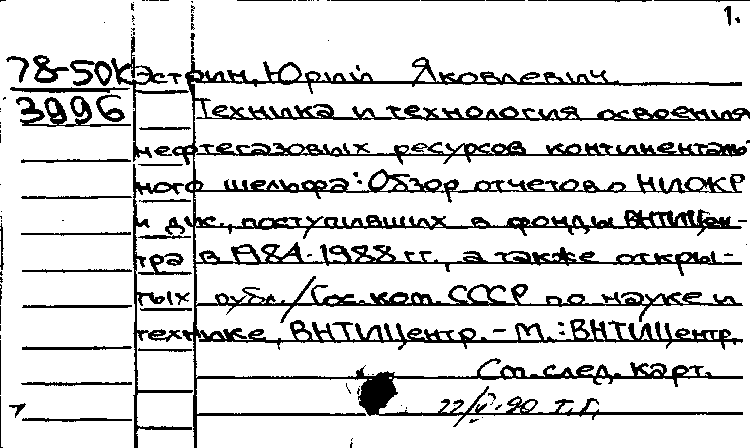 1.
78-50К Эстрин, Юрий Яковлевич.
3996 Техника и технология освоения
нефтегазовых ресурсов континенталь
ного шельфа: Обзор отчетов о НИОКР
и дис., поступивших в фонды ВНТИЦен-
тра в 1984-1988 гг., а также откры-
тых публ./Гос. ком. СССР по науке и
технике, ВНТИЦентр. - М.: ВНТИЦентр,
См. след. карт.
22/V-90 Т.Г.